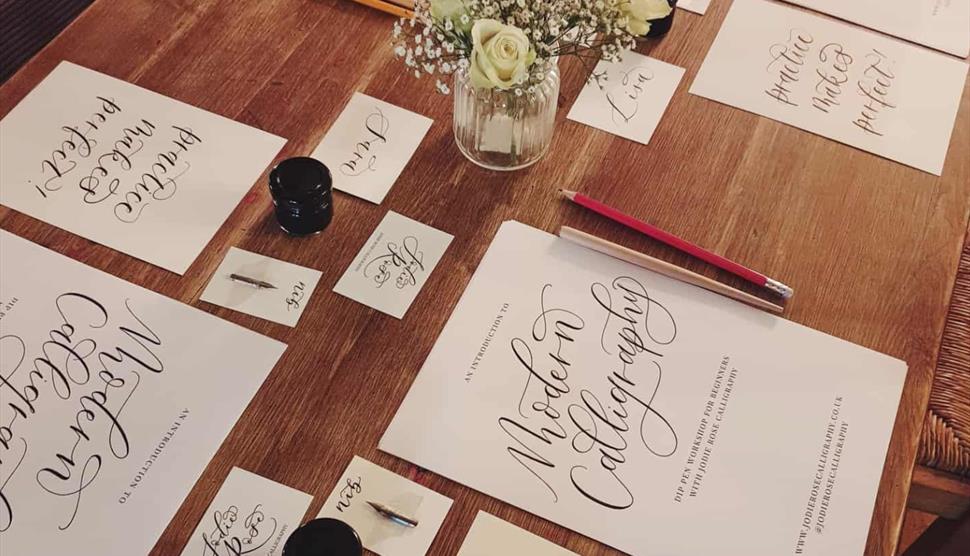 practice
makes
perfect!
Sara
Lisa
practice
makes
perfect!
nib
Jodie
Rose
AN INTRODUCTION TO
Modern
Calligraphy
DIP PEN WORKSHOP FOR BEGINNERS
WITH JODIE ROSE CALLIGRAPHY
WWW.JODIEROSECALLIGRAPHY.CO.UK
@JODIEROSECALLIGRAPHY
AN INTRODUCTION TO
Modern
Calligra
DIP
Jodie
nib